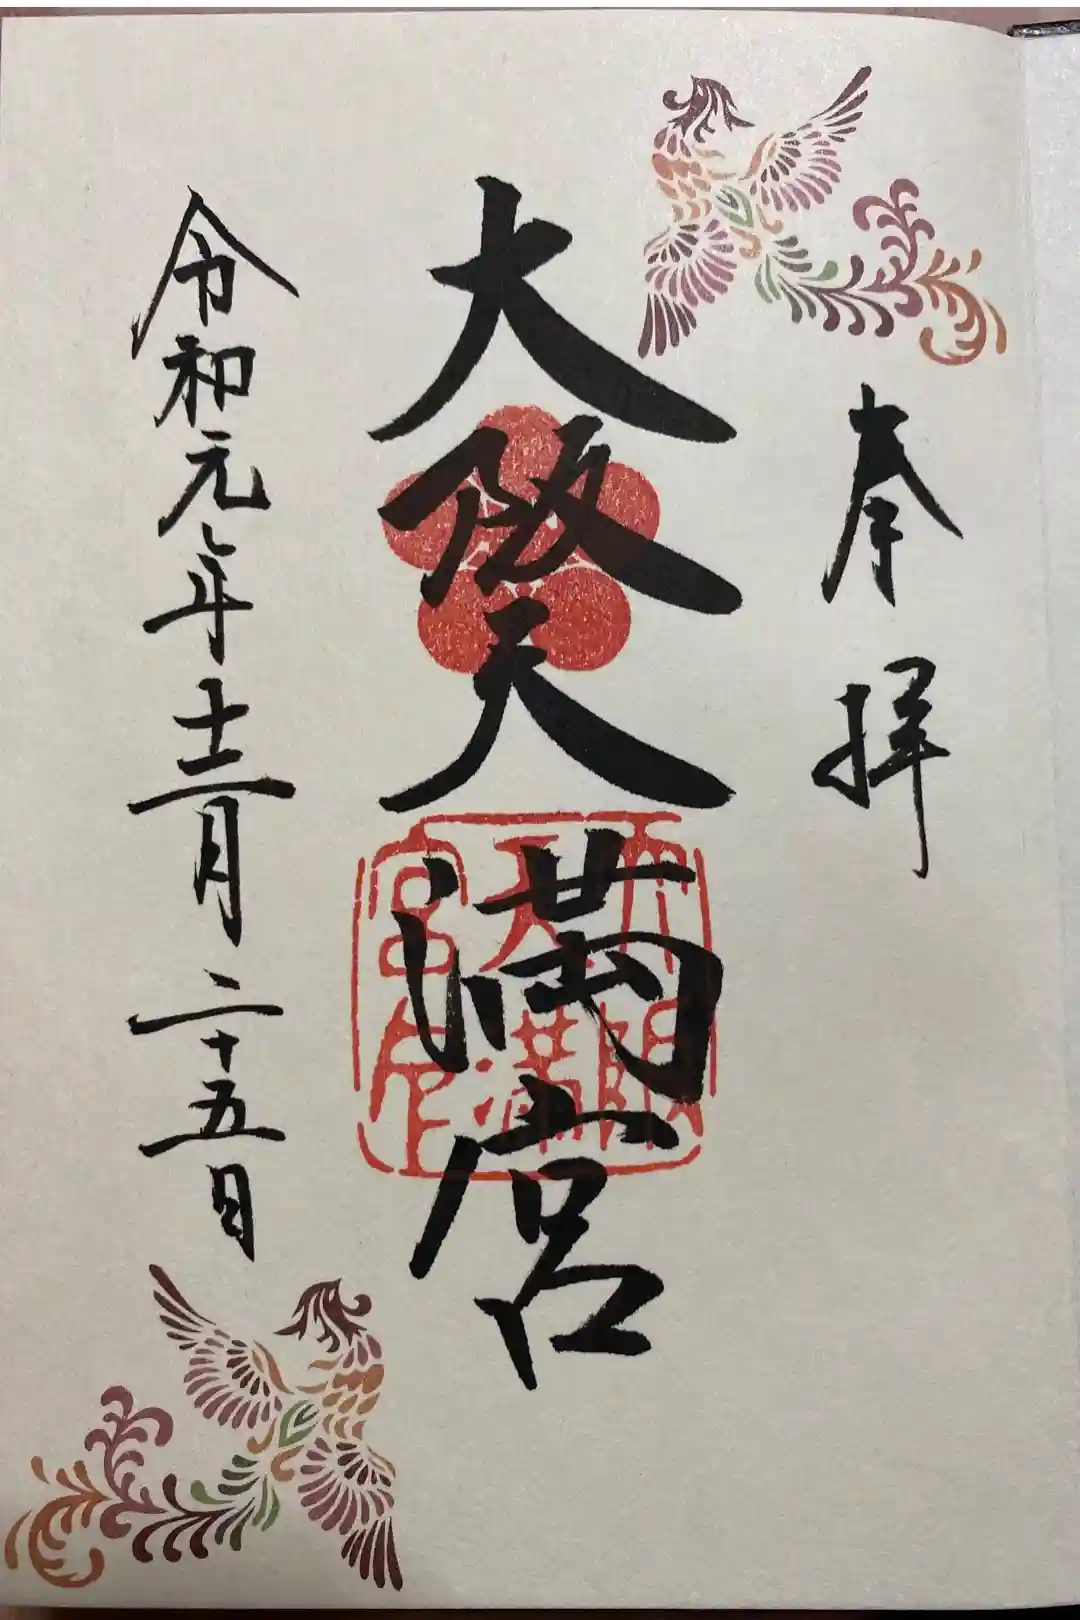 奉拝
大阪天満宮
大阪天満宮印
令和元年十二月二十五日